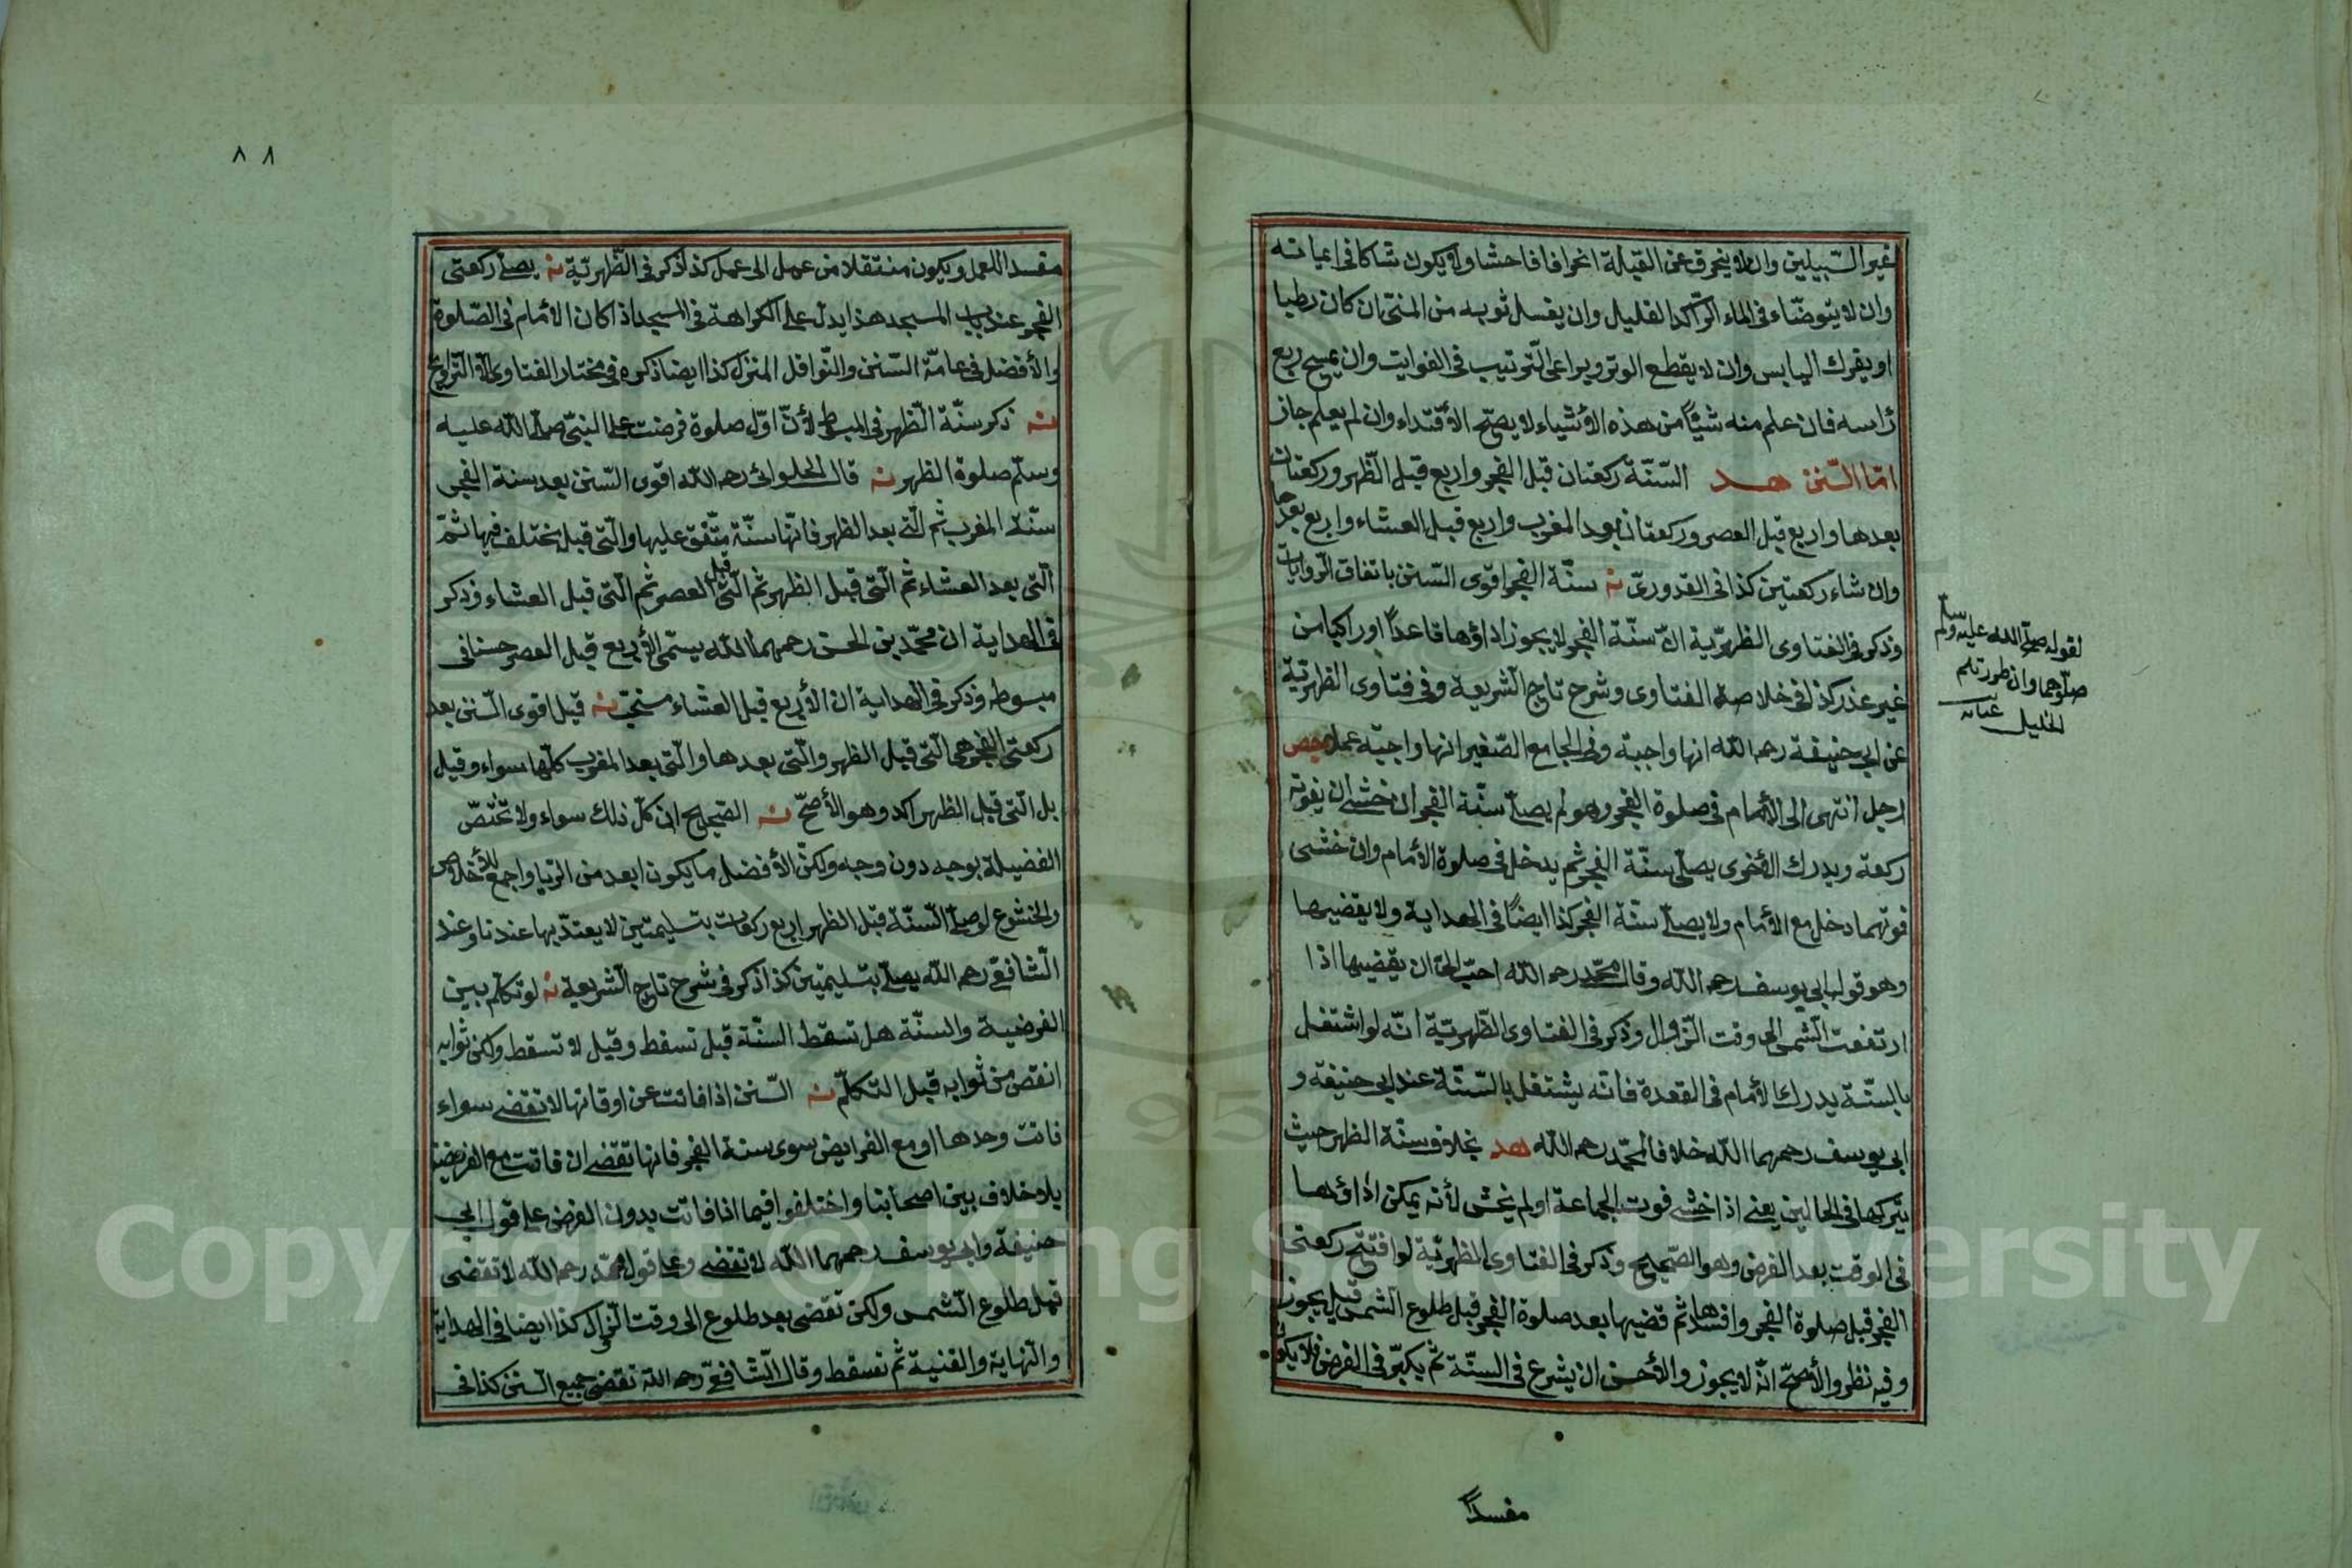 غير السّبيلين وان لا ينحرف عن القبلة انحرافا فاحشا ولا يكون شاكا في ايمانه
وان لا يتوضّاء في الماء الرّاكد القليل وان يغسل ثوبه من المنيّ ان كان رطبا
او يفرك اليابس وان لا يقطع الوتر ويراعى التّرتيب في الفوايت وان يمسح ربع
رأسه فان علم منه شيئاً من هذه الأشياء لا يصّح الأقتداء وان لم يعلم جاز
امّا السّنن هد السّنّة ركعتان قبل الفجر واربع قبل الظّهر وركعتان
بعدها واربع قبل العصر وركعتان بعد المغرب واربع قبل العشاء واربع بعدها
وان شاء ركعتين كذا في القدوريّ نه سنّة الفجر اقوى السّنن باتفاق الرّوايات
وذكر في الفتاوى الظهريّة انّ سنّة الفجر لا يجوز اداؤها قاعداً او راكبا من
غير عذر كذا في خلاصة الفتاوى وشرح تاج الشّريعة وفي فتاوى الظهريّة
عن ابي حنيفة رحمه اللّه انها واجبة وفي الجامع الصّغير انها واجبة عملا
رجل انتهى الى الأمام في صلوة الفجر وهو لم يصلّ سنّة الفجر ان خشى ان يفوته
ركعة ويدرك الأخرى يصلّى سنّة الفجر ثم يدخل في صلوة الأمام وان خشى
فوتهما دخل مع الأمام ولا يصلّى سنّة الفجر كذا ايضاً في الهداية ولا يقضيها
وهو قول ابي يوسف رحمه اللّه وقال محمّد رحمه اللّه احبّ اليّ ان يقضيها اذا
ارتفعت الشّمس الى وقت الزّوال وذكر في الفتاوى الظّهريّة انّه لو اشتغل
بالسنّة يدرك الأمام في القعدة فانّه يشتغل بالسّنّة عند ابي حنيفة و
ابي يوسف رحمهما اللّه خلافا لمحمّد رحمه اللّه هد بخلاف سنّة الظهر حيث
يتركها في الحالين يعنى اذا خشى فوت الجماعة او لم يخش لأنه يمكن اداؤها
في الوقت بعد الفرض وهو الصّحيح وذكر في الفتاوى الظهريّة لو افتتح ركعتى
الفجر قبل صلوة الفجر وافسدها ثم قضيها بعد صلوة الفجر قبل طلوع الشمس قيل يجوز
وفيه نظر والأصحّ انّه لا يجوز والأحسن ان يشرع في السنّة ثم يكبّر في الفرض فلا يكون
لقوله صلّى اللّه عليه وسلّم
صلّوهما وان طردتكم
الخليل
مفسداً
٨٨
مفسدا للعمل ويكون منتقلا من عمل الى عمل كذا ذكر في الظّهريّة نه يصلّى ركعتى
الفجر عند باب المسجد هذا يدلّ على الكراهة في المسجد اذا كان الأمام في الصّلوة
والأفضل في عامّة السّنن والنّوافل المنزل كذا ايضا ذكره في مختار الفتاوى الّا التّراويح
نه ذكر سنّة الظهر في المبسوط لأنّ اوّل صلوة فرضت على النبيّ صلّى اللّه عليه
وسلّم صلوة الظهر نه قال الحلوائى رحمه اللّه اقوى السّنن بعد سنة الفجر
سنّة المغرب ثم الّتى بعد الظهر فانّها سنّة متّفق عليها والّتى قبل يختلف فيها ثمّ
الّتى بعد العشاء ثم الّتى قبل الظهر ثم الّتى قبل العصر ثم الّتى قبل العشاء وذكر
في الهداية ان محمّد بن الحسن رحمهما اللّه يسمّى الأربع قبل العصر حسنا في
مبسوطه وذكر في الهداية ان الأربع قبل العشاء مستحبّ نه قيل اقوى السّنن بعد
ركعتى الفجر هى الّتى قبل الظهر والّتى بعدها والّتى بعد المغرب كلّها سواء وقيل
بل الّتى قبل الظهر اكد وهو الأصحّ نه الصّحيح ان كلّ ذلك سواء ولا تختصّ
الفضيلة بوجه دون وجه ولكنّ الأفضل ما يكون ابعد من الريا واجمع للأخلاص
والخشوع لو صلّى السّنّة قبل الظهر اربع ركعات بتسليمتين لا يعتدّ بها عندنا وعند
الشّافعىّ رحمه اللّه يصلّى بتسليمتين كذا ذكر في شرح تاج الشّريعة نه لو تكلّم بين
الفرضية والسنّة هل تسقط السنّة قيل تسقط وقيل لا تسقط ولكن ثوابه
انقص من ثوابه قبل التكلّم نه السّنن اذا فاتت عن اوقاتها لا تقضى سواء
فاتت وحدها او مع الفرايض سوى سنة الفجر فانها تقضى ان فاتت مع الفريضة
بلا خلاف بين اصحابنا واختلفوا فيما اذا فاتت بدون الفرض على قول ابي
حنيفة وابي يوسف رحمهما اللّه لا تقضى وعلى قول محمّد رحمه اللّه لا تقضى
قبل طلوع الشّمس ولكن تقضى بعد طلوع الى وقت الزّوال كذا ايضا في الهداية
والنّهاية والقنية ثم تسقط وقال الشّافعىّ رحمه اللّه تقضى جميع السّنن كذا في
Copyright © King Saud University